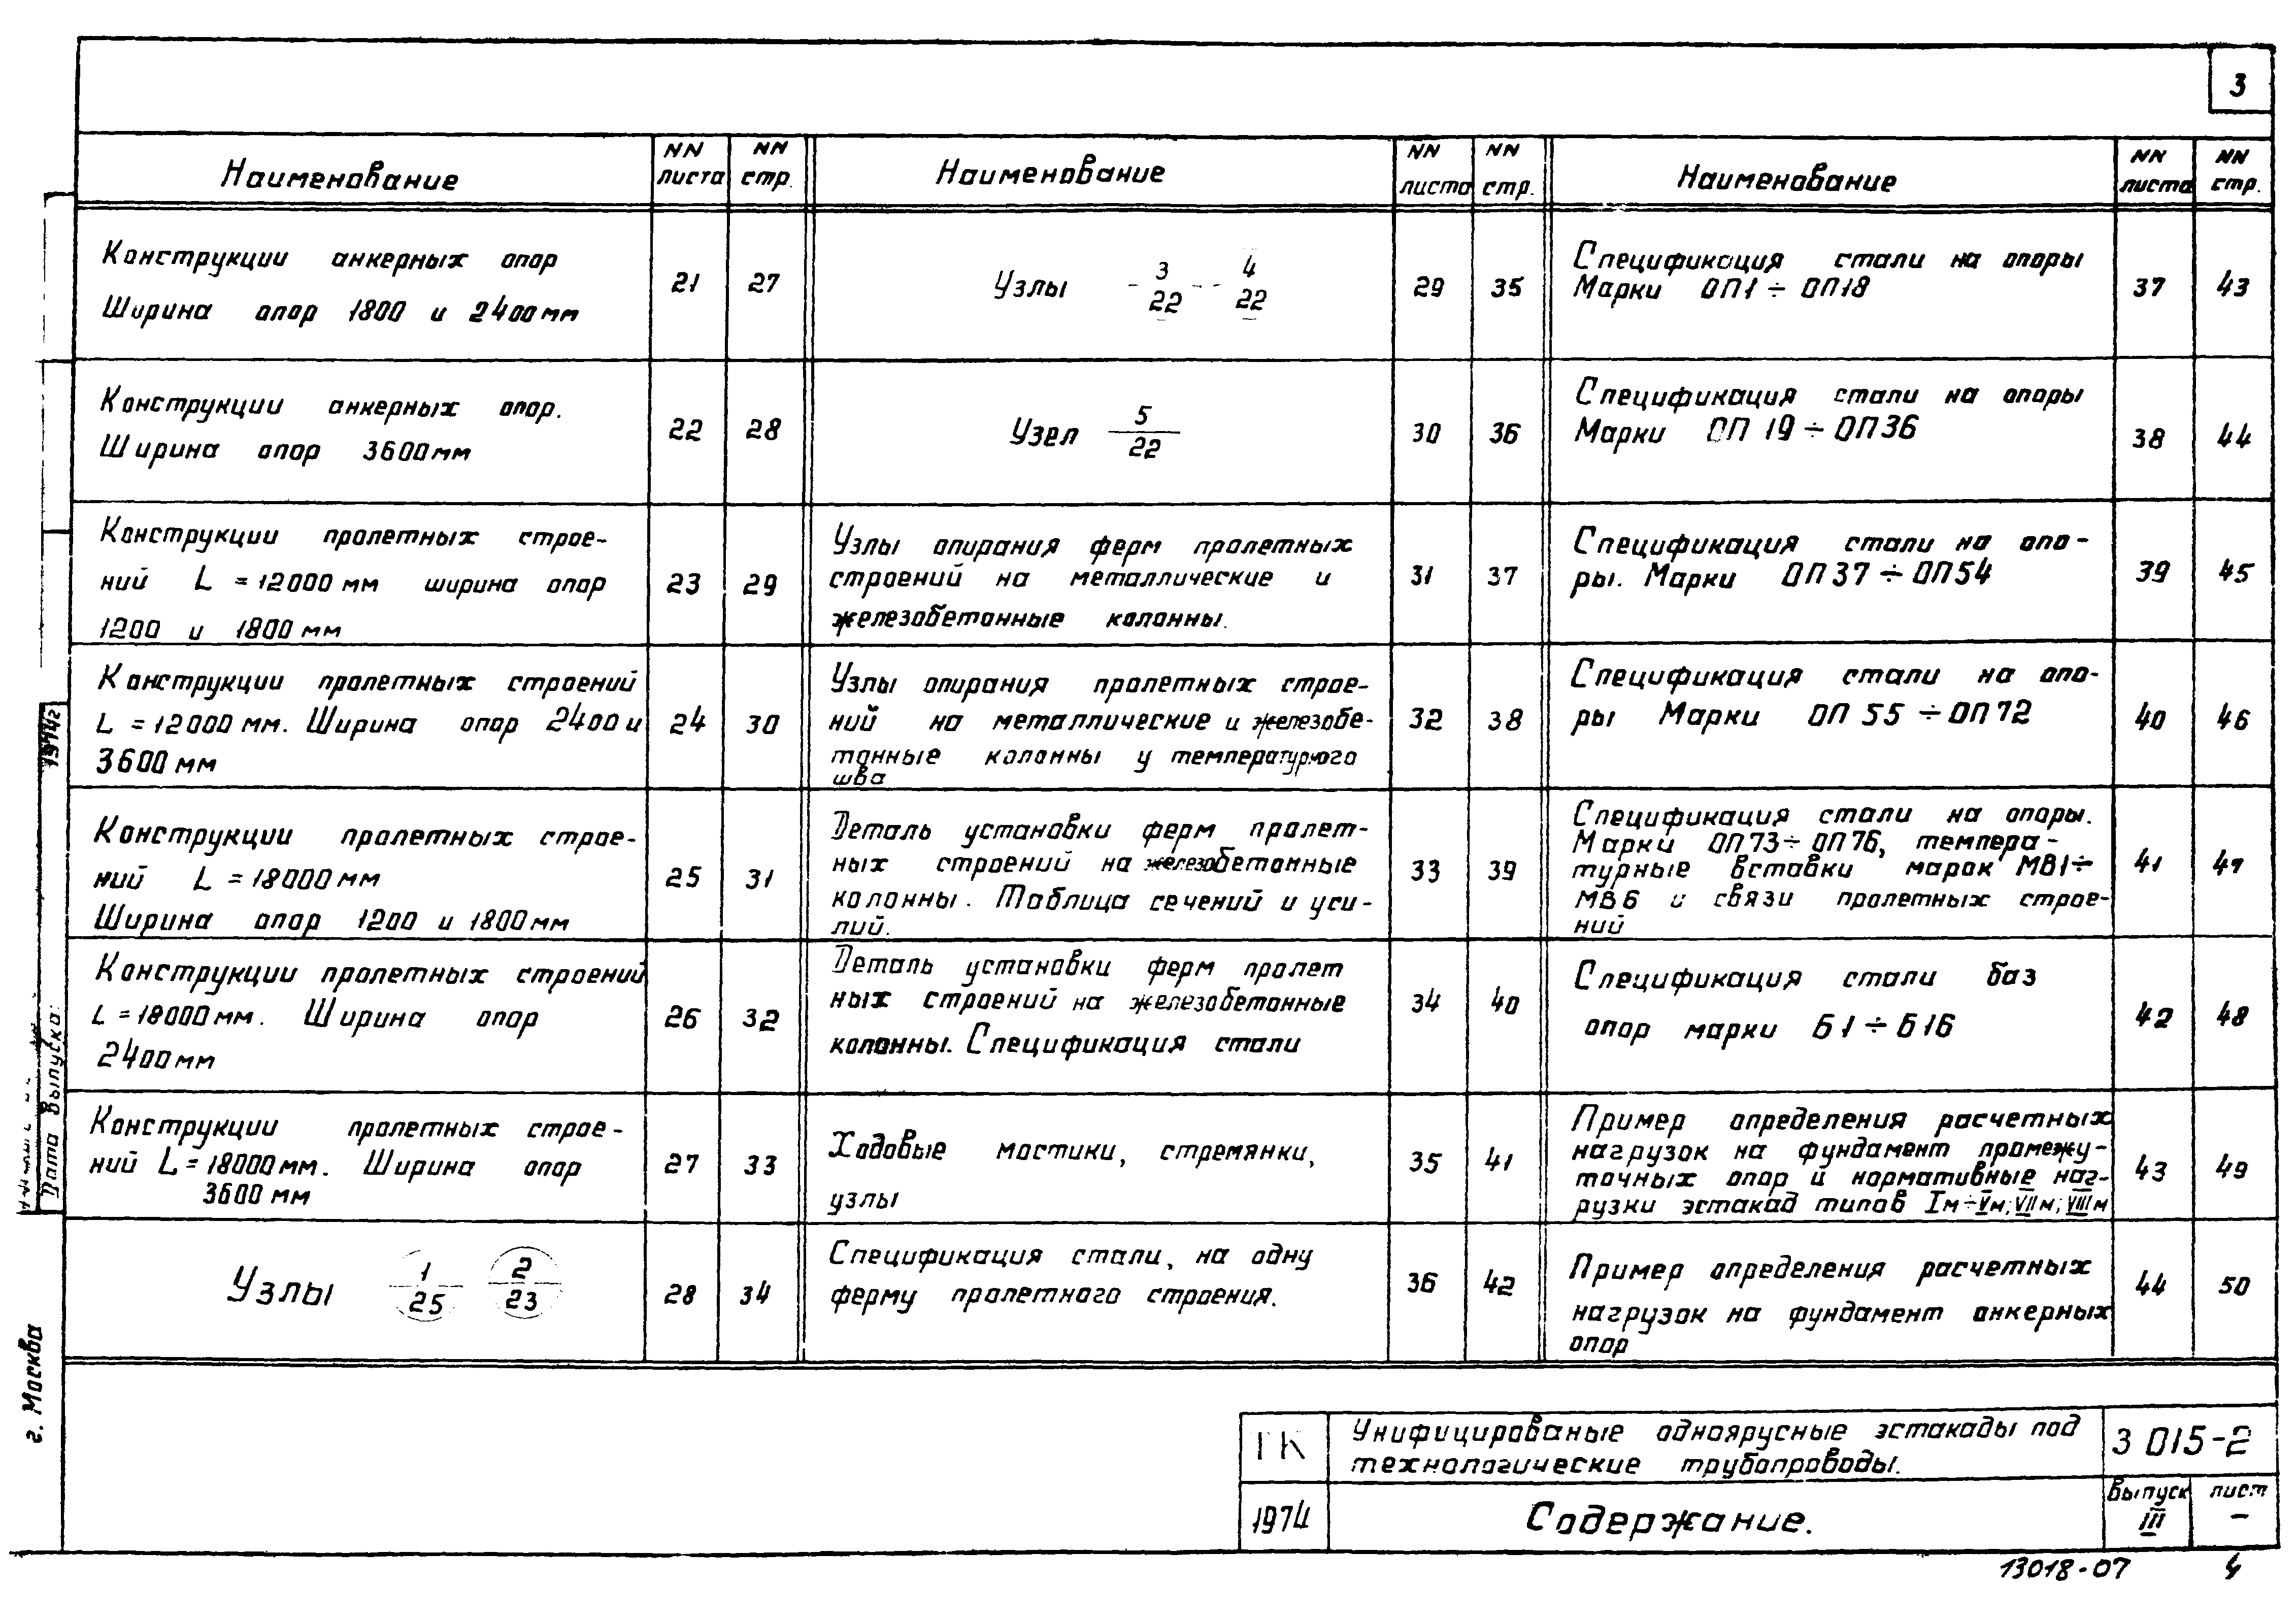 3
Наименование
NN листа
NN стр.
Наименование
NN листа
NN стр.
Наименование
NN листа
NN стр.
Конструкции анкерных опор
Ширина опор 1800 и 2400мм
21
27
Конструкции анкерных опор.
Ширина опор 3600мм
22
28
Конструкции пролетных строе-
ний L = 12000 мм ширина опор
1200 и 1800 мм
23
29
Конструкции пролетных строений
L = 12000 мм. Ширина опор 2400 и
3600 мм
24
30
Конструкции пролетных строе-
ний L = 18000 мм
Ширина опор 1200 и 1800мм
25
31
Конструкции пролетных строений
L = 18000мм. Ширина опор
2400 мм
26
32
Конструкции пролетных строе-
ний L = 18000мм. Ширина опор
3600 мм
27
33
Узлы 1/25 2/23
28
34
Узлы 3/22 -- 4/22
29
35
Узел 5/22
30
36
Узлы опирания ферм пролетных
строений на металлические и
железобетонные колонны.
31
37
Узлы опирания пролетных строе-
ний на металлические и железобе-
тонные колонны у температурного
шва
32
38
Деталь установки ферм пролет-
ных строений на железобетонные
колонны. Таблица сечений и уси-
лий.
33
39
Деталь установки ферм пролет
ных строений на железобетонные
колонны. Спецификация стали
34
40
Ходовые мостики, стремянки,
узлы
35
41
Спецификация стали, на одну
ферму пролетного строения.
36
42
Спецификация стали на опоры
Марки ОП1 ÷ ОП18
37
43
Спецификация стали на опоры
Марки ОП 19 ÷ ОП36
38
44
Спецификация стали на опо-
ры. Марки ОП37 ÷ ОП54
39
45
Спецификация стали на опо-
ры Марки ОП 55 ÷ ОП72
40
46
Спецификация стали на опоры.
Марки ОП73 ÷ ОП76, темпера-
турные вставки марок МВ1÷
МВ6 и связи пролетных строе-
ний
41
47
Спецификация стали баз
опор марки Б1 ÷ Б16
42
48
Пример определения расчетных
нагрузок на фундамент промежу-
точных опор и нормативные наг-
рузки эстакад типов Iм÷Vм; VIIм; VIIIм
43
49
Пример определения расчетных
нагрузок на фундамент анкерных
опор
44
50
1974г
Дата выпуска:
г. Москва
ТК
Унифицированые одноярусные эстакады под
технологические трубопроводы.
3 015-2
1974
Содержание.
Выпуск
III
лист
–
13018-07
4